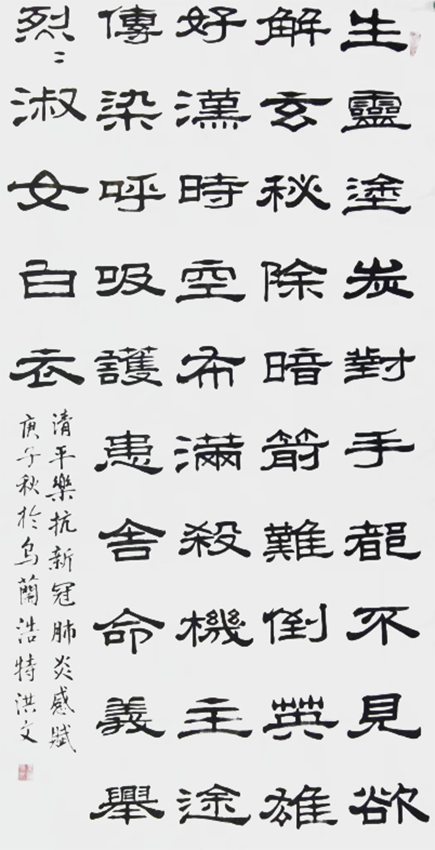 生靈塗炭對手都不見欲
解玄秘除暗箭難倒英雄
好漢時空布滿殺機主途
傳染呼吸護患舍命義舉
烈〻淑女白衣
清平樂抗新冠肺炎感賦
庚子秋於烏蘭浩特洪文